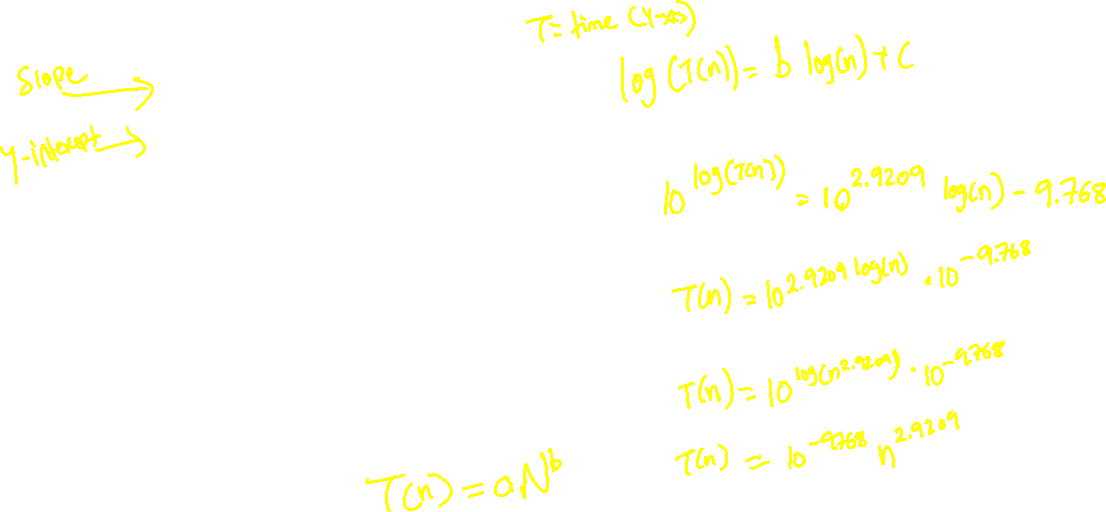 T= time (Y-axis)
log (T(n)) = b log(n) + C
Slope →
Y-intercept →
10^log(T(n)) = 10^2.9209 log(n) - 9.768
T(n) = 10^2.9209 log(n) · 10^-9.768
T(n) = 10^log(n^2.9209) · 10^-9.768
T(n) = 10^-9.768 n^2.9209
T(n) = aN^b